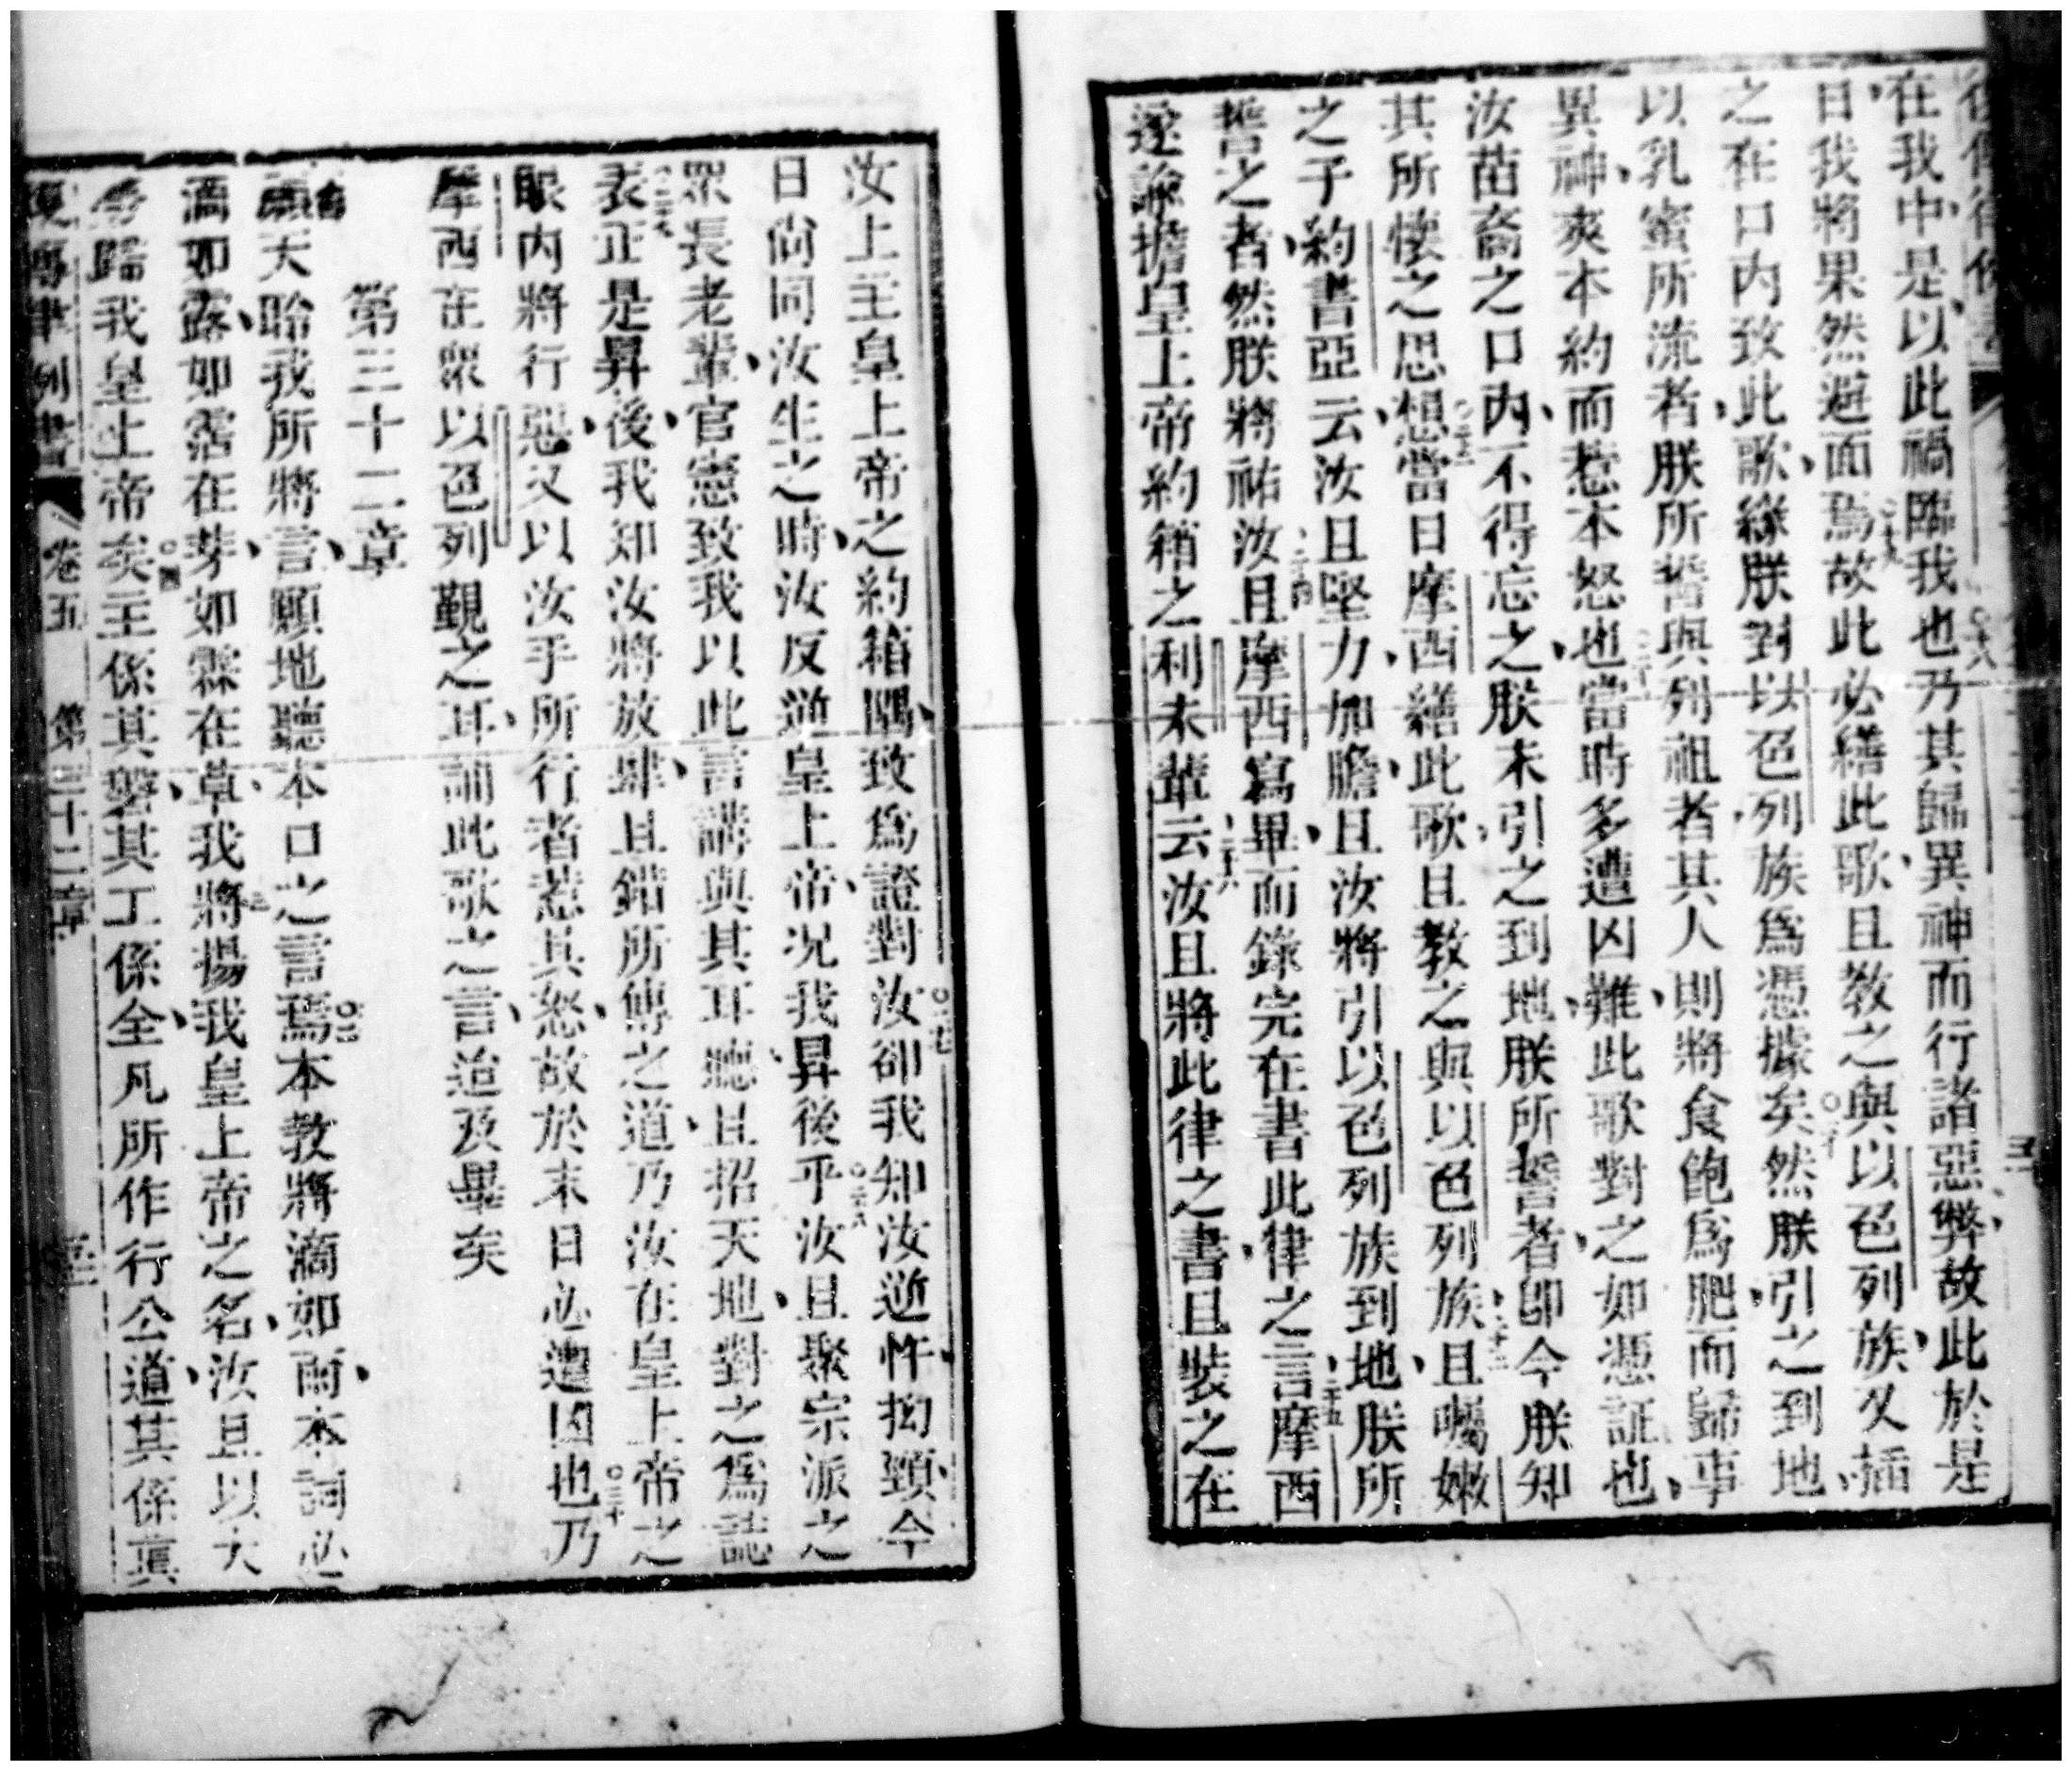 在我中是以此禍臨我也乃其歸異神而行諸惡弊故此於是
日我將果然避面焉○十九故此必繕此歌且教之與以色列族又插
之在口內致此歌緣朕對以色列族為憑據矣○二十然朕引之到地
以乳蜜所流者朕所誓與列祖者其人則將食飽為肥而歸事
異神爽本約而惹本怒也當時多遭凶難此歌對之如憑証也
汝苗裔之口內不得忘之朕未引之到地朕所誓者即今朕知
其所懷之思想○二十二當日摩西繕此歌且教之與以色列族○二十三且囑嫩
之子約書亞云汝且堅力加膽且汝將引以色列族到地朕所
誓之者然朕將祐汝○二十四且摩西寫畢而錄完在書此律之言○二十五摩西
遂諭擔皇上帝約箱之利未輩云○二十六汝且將此律之書且裝之在
汝上主皇上帝之約箱隅致為證對汝○二七卻我知汝逆忤拗頸今
日尚同汝生之時汝反逆皇上帝况我昇後乎○二十八汝且聚宗派之
眾長老輩官憲致我以此言講與其耳聽且招天地對之為誌
表○二十九正是昇後我知汝將放肆且錯所傳之道乃汝在皇上帝之
眼內將行惡又以汝手所行者惹其怒故於末日必遭凶也○三十乃
摩西在眾以色列觀之耳誦此歌之言迨及畢矣
第三十二章
願天聆我所將言願地聽本口之言焉○二本教將滴如雨本詞必
滴如露如霑在芽如霖在草○三我將揚我皇上帝之名汝且以大
歸我皇上帝矣○四主係其磐其工係全凡所作行公道其係真
卷五 第三十二章